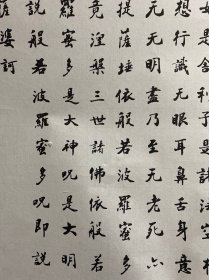 是舍利子是諸法空
想行識无眼耳鼻舌身意
无无明盡乃至无老死亦
提薩埵依般若波羅蜜多
竟涅槃三世諸佛依般若
羅蜜多是大神咒是大明
說般若波羅蜜多咒即說
薩婆訶